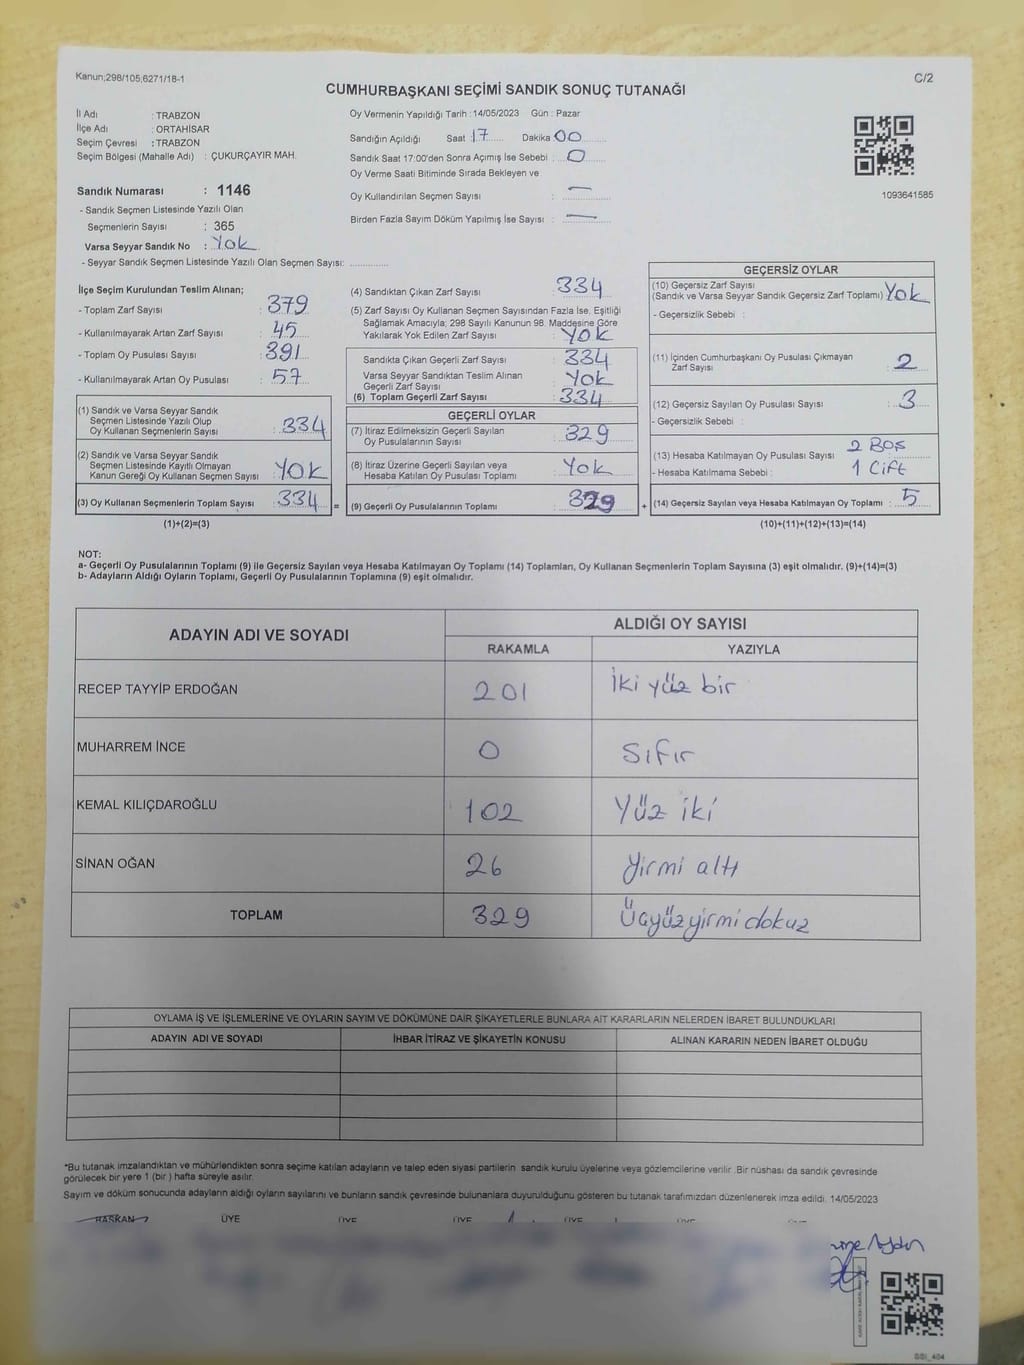 Kanun;298/105;6271/18-1
C/2
CUMHURBAŞKANI SEÇİMİ SANDIK SONUÇ TUTANAĞI
İl Adı : TRABZON
İlçe Adı : ORTAHİSAR
Seçim Çevresi : TRABZON
Seçim Bölgesi (Mahalle Adı) : ÇUKURÇAYIR MAH.
Sandık Numarası : 1146
- Sandık Seçmen Listesinde Yazılı Olan
Seçmenlerin Sayısı : 365
Varsa Seyyar Sandık No : Yok
- Seyyar Sandık Seçmen Listesinde Yazılı Olan Seçmen Sayısı: ..............
Oy Vermenin Yapıldığı Tarih : 14/05/2023 Gün : Pazar
Sandığın Açıldığı Saat : 17 Dakika 00
Sandık Saat 17:00'den Sonra Açımış İse Sebebi : 0
Oy Verme Saati Bitiminde Sırada Bekleyen ve
Oy Kullandırılan Seçmen Sayısı : —
Birden Fazla Sayım Döküm Yapılmış İse Sayısı : —
1093641585
İlçe Seçim Kurulundan Teslim Alınan;
- Toplam Zarf Sayısı : 379
- Kullanılmayarak Artan Zarf Sayısı : 45
- Toplam Oy Pusulası Sayısı : 391
- Kullanılmayarak Artan Oy Pusulası : 57
(1) Sandık ve Varsa Seyyar Sandık
Seçmen Listesinde Yazılı Olup
Oy Kullanan Seçmenlerin Sayısı : 334
(2) Sandık ve Varsa Seyyar Sandık
Seçmen Listesinde Kayıtlı Olmayan
Kanun Gereği Oy Kullanan Seçmen Sayısı : YOK
(3) Oy Kullanan Seçmenlerin Toplam Sayısı : 334 =
(1)+(2)=(3)
(4) Sandıktan Çıkan Zarf Sayısı : 334
(5) Zarf Sayısı Oy Kullanan Seçmen Sayısından Fazla İse; Eşitliği
Sağlamak Amacıyla; 298 Sayılı Kanunun 98. Maddesine Göre
Yakılarak Yok Edilen Zarf Sayısı : YOK
Sandıkta Çıkan Geçerli Zarf Sayısı : 334
Varsa Seyyar Sandıktan Teslim Alınan
Geçerli Zarf Sayısı : Yok
(6) Toplam Geçerli Zarf Sayısı : 334
GEÇERLİ OYLAR
(7) İtiraz Edilmeksizin Geçerli Sayılan
Oy Pusulalarının Sayısı : 329
(8) İtiraz Üzerine Geçerli Sayılan veya
Hesaba Katılan Oy Pusulası Toplamı : Yok
(9) Geçerli Oy Pusulalarının Toplamı : 329 +
GEÇERSİZ OYLAR
(10) Geçersiz Zarf Sayısı
(Sandık ve Varsa Seyyar Sandık Geçersiz Zarf Toplamı) Yok
- Geçersizlik Sebebi :
(11) İçinden Cumhurbaşkanı Oy Pusulası Çıkmayan
Zarf Sayısı : 2
(12) Geçersiz Sayılan Oy Pusulası Sayısı : 3
- Geçersizlik Sebebi :
(13) Hesaba Katılmayan Oy Pusulası Sayısı : 2 Boş
- Hesaba Katılmama Sebebi : 1 Çift
(14) Geçersiz Sayılan veya Hesaba Katılmayan Oy Toplamı : 5
(10)+(11)+(12)+(13)=(14)
NOT:
a- Geçerli Oy Pusulalarının Toplamı (9) ile Geçersiz Sayılan veya Hesaba Katılmayan Oy Toplamı (14) Toplamları, Oy Kullanan Seçmenlerin Toplam Sayısına (3) eşit olmalıdır. (9)+(14)=(3)
b- Adayların Aldığı Oyların Toplamı, Geçerli Oy Pusulalarının Toplamına (9) eşit olmalıdır.
ADAYIN ADI VE SOYADI ALDIĞI OY SAYISI
RAKAMLA YAZIYLA
RECEP TAYYİP ERDOĞAN 201 İki yüz bir
MUHARREM İNCE 0 Sıfır
KEMAL KILIÇDAROĞLU 102 Yüz iki
SİNAN OĞAN 26 Yirmi altı
TOPLAM 329 Üçyüzyirmidokuz
OYLAMA İŞ VE İŞLEMLERİNE VE OYLARIN SAYIM VE DÖKÜMÜNE DAİR ŞİKAYETLERLE BUNLARA AİT KARARLARIN NELERDEN İBARET BULUNDUKLARI
ADAYIN ADI VE SOYADI İHBAR İTİRAZ VE ŞİKAYETİN KONUSU ALINAN KARARIN NEDEN İBARET OLDUĞU
*Bu tutanak imzalandıktan ve mühürlendikten sonra seçime katılan adayların ve talep eden siyasi partilerin sandık kurulu üyelerine veya gözlemcilerine verilir .Bir nüshası da sandık çevresinde
görülecek bir yere 1 (bir ) hafta süreyle asılır.
Sayım ve döküm sonucunda adayların aldığı oyların sayılarını ve bunların sandık çevresinde bulunanlara duyurulduğunu gösteren bu tutanak tarafımızdan düzenlenerek imza edildi. 14/05/2023
BAŞKAN ÜYE ÜYE ÜYE ÜYE ÜYE ÜYE